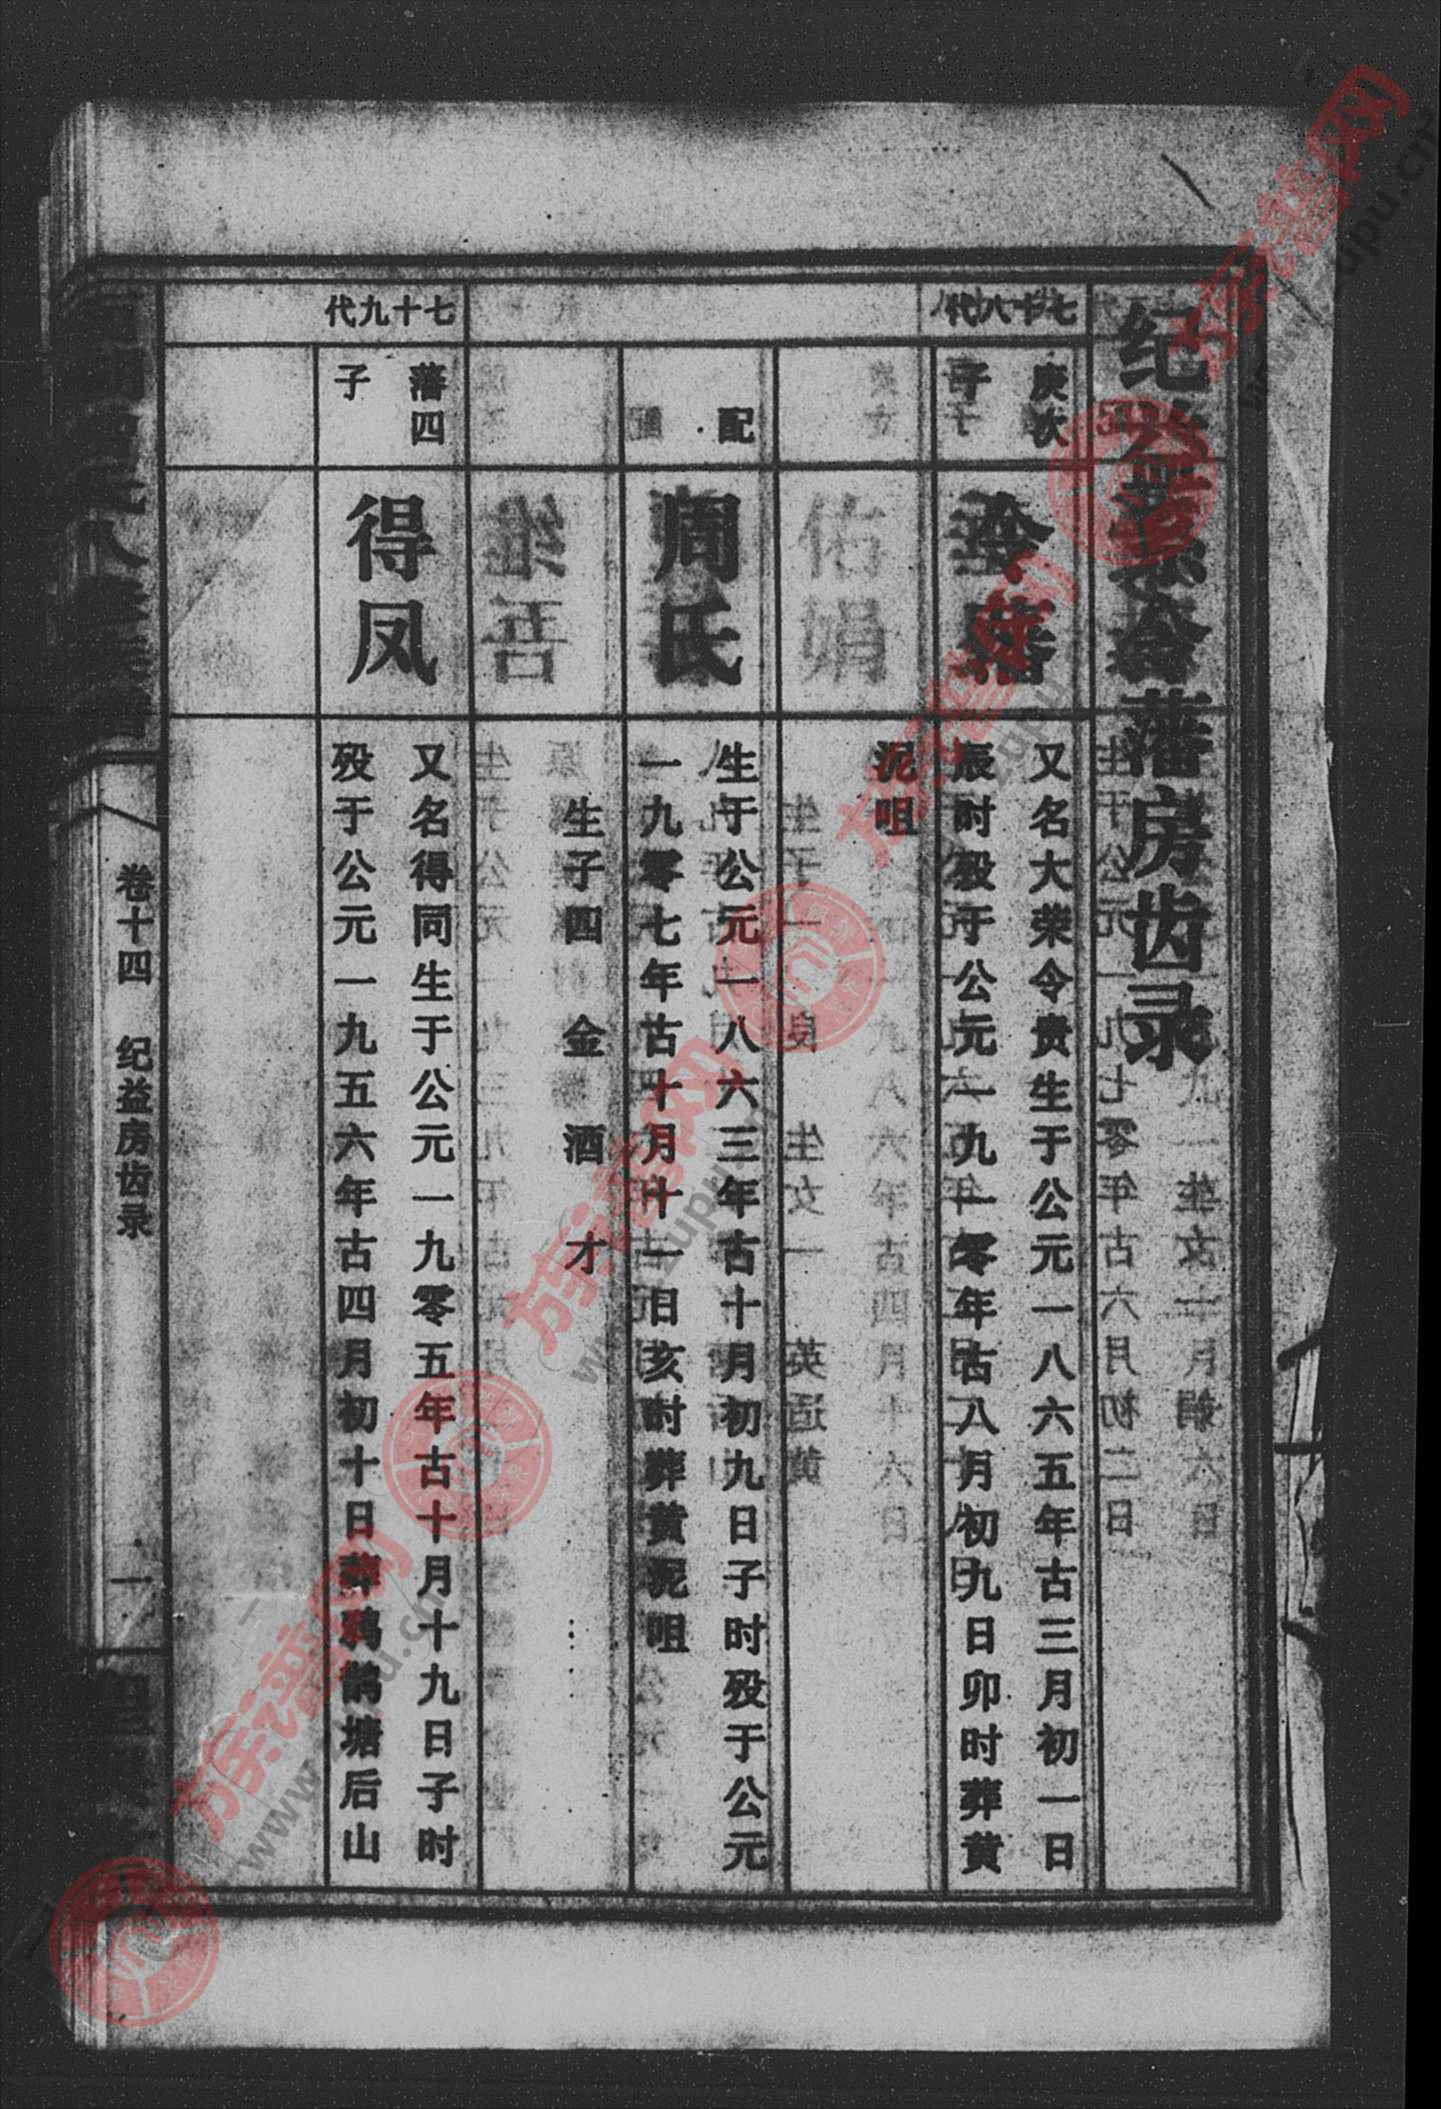 纪益
藩房齿录
七十八代
庚次
子
令藩
又名大荣令贵生于公元一八六五年古三月初一日
辰时殁于公元一九一零年古八月初九日卯时葬黄
泥咀
配
周氏
生于公元一八六三年古十月初九日子时殁于公元
一九零七年古十月十一日亥时葬黄泥咀
生子四 金 酒 才
七十九代
藩四
子
得凤
又名得同生于公元一九零五年古十月十九日子时
殁于公元一九五六年古四月初十日葬鸦鹊塘后山
卷十四 纪益房齿录
一
族谱网
www.zupu.cn